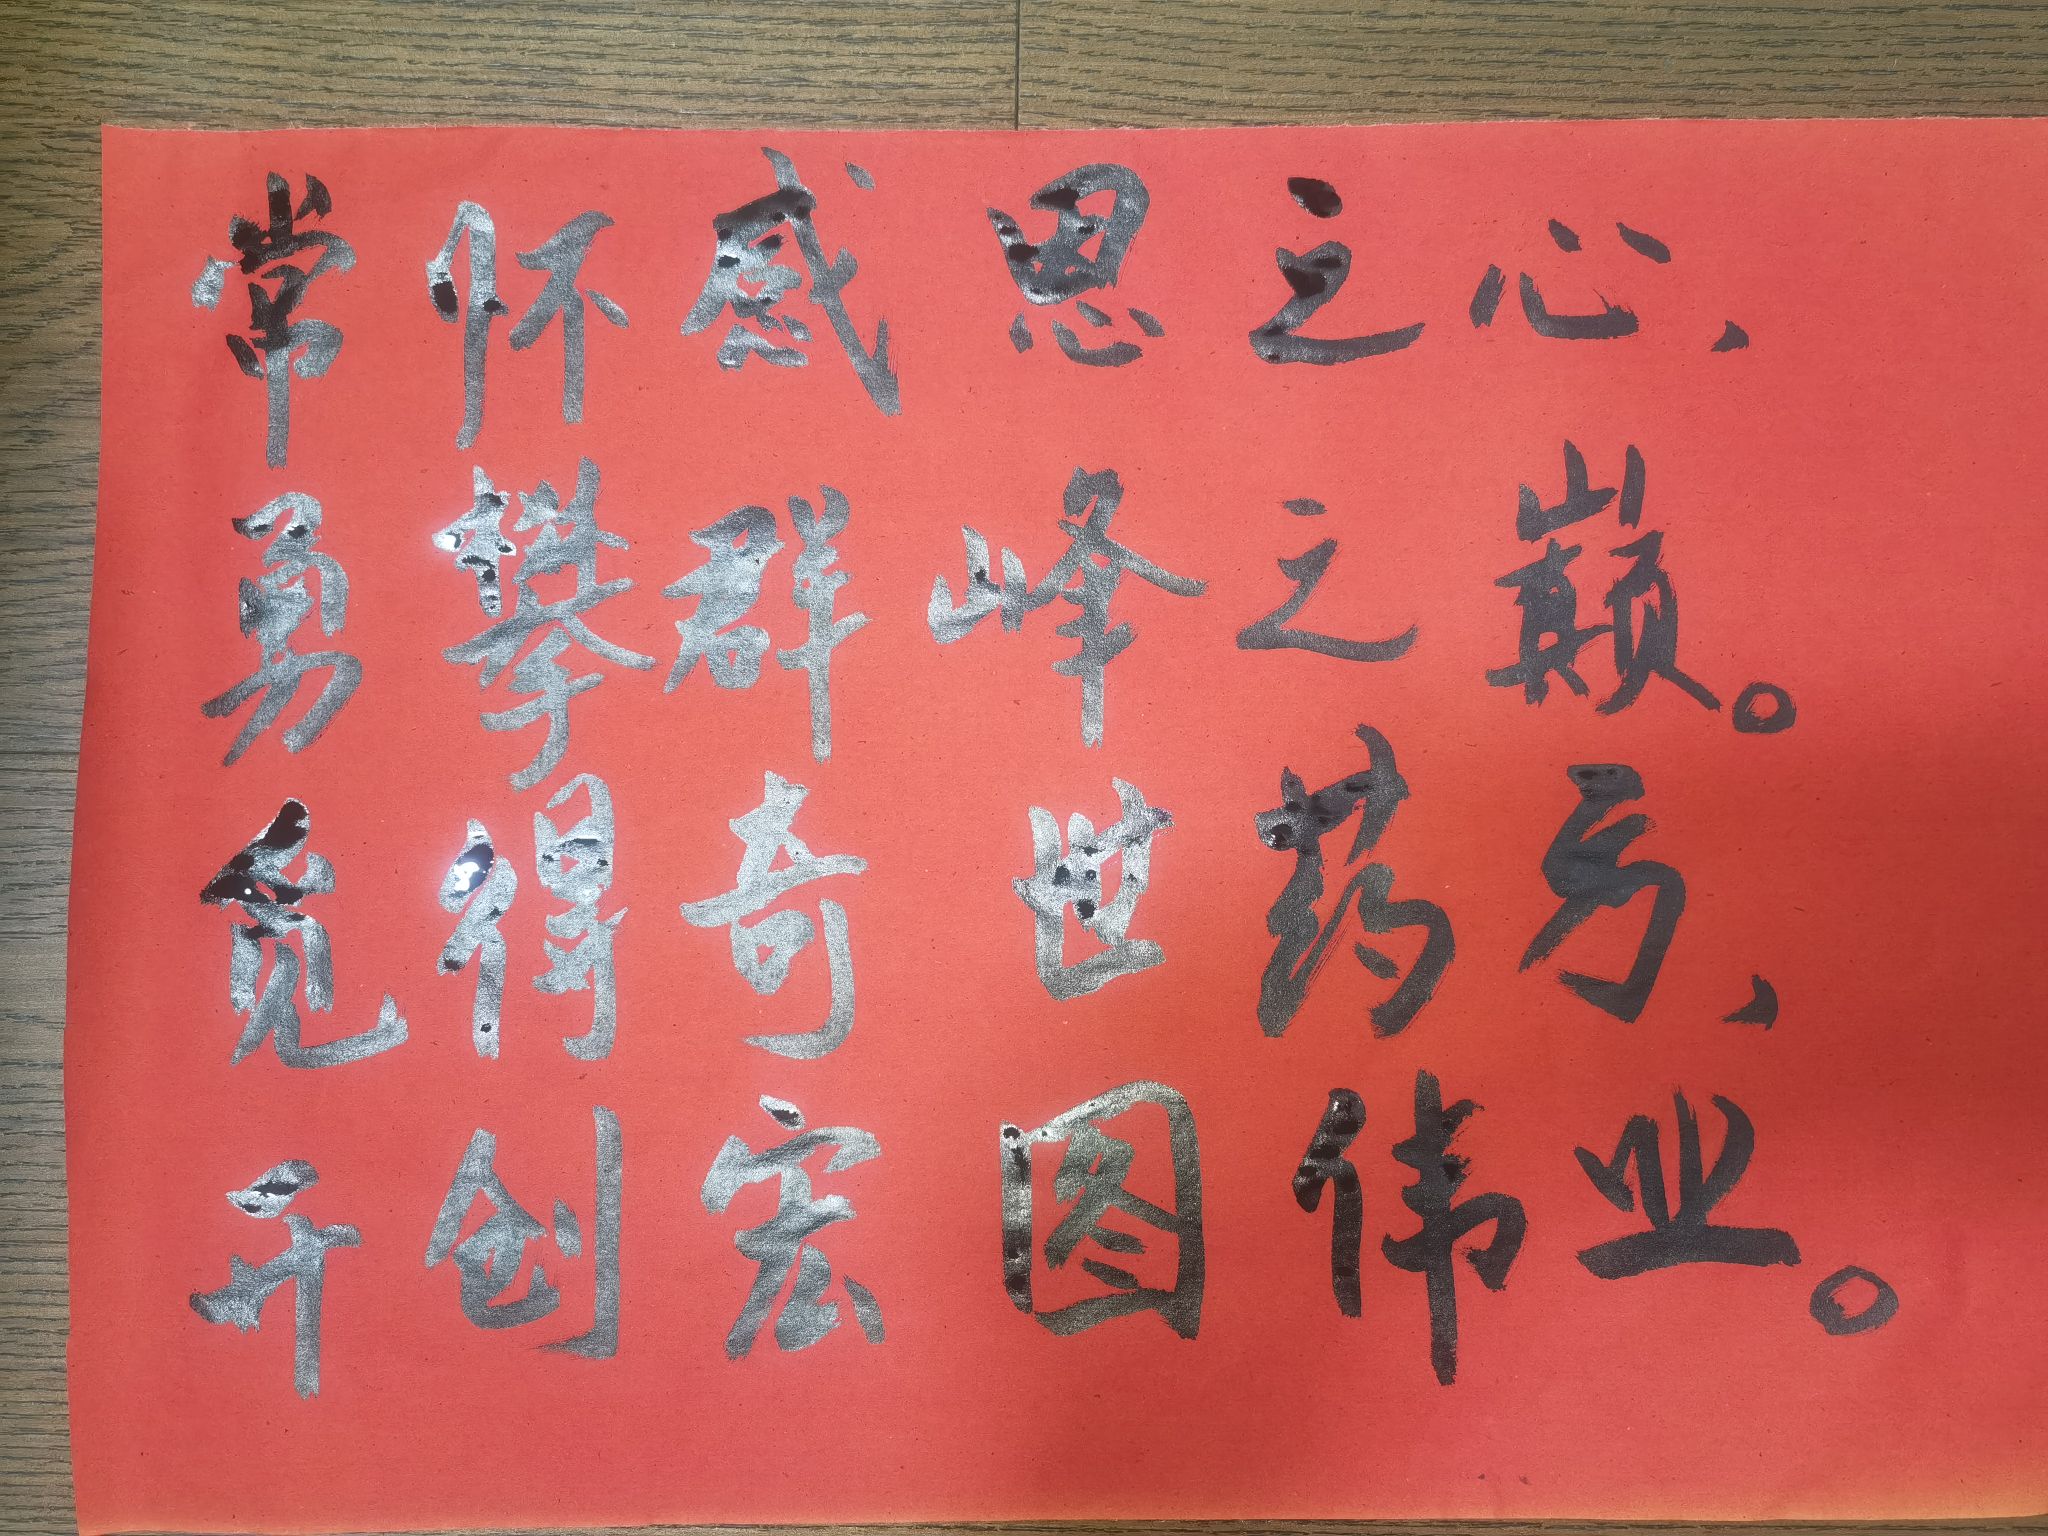 常怀感恩之心、
勇攀群峰之巅。
觅得奇世药号、
开创宏图伟业。